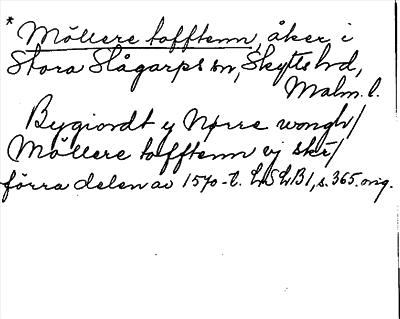 * Möllere tofftenn, åker i
Stora Slågarps sn, Skytts hd,
Malm. l.
Bygiordt y Nørre wongh/
Möllere tofftenn vj skr/
förra delen av 1570-t. LSLB1, s. 365. orig.